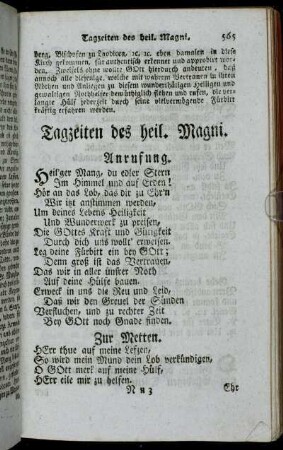 Tagzeiten des heil. Magni. 565
berg, Bischofen zu Laodicea, ꝛc. ꝛc. eben damalen in diese
Kirch gekommen, für authentisch erkennet und approbirt wor-
den. Zweifels ohne wollte GOtt hierdurch andeuten, daß
annoch alle diejenige, welche mit wahrem Vertrauen in ihren
Nöthen und Anliegen zu diesem wunderthätigen Heiligen und
gewaltigen Nothhelfer demüthiglich flehen und rufen, die ver-
langte Hülf jederzeit durch seine vielvermögende Fürbitt
kräftig erfahren werden.
Tagzeiten des heil. Magni.
Anrufung.
Heil'ger Mang, du edler Stern
Im Himmel und auf Erden!
Hör an das Lob, das dir zu Ehr'n
Wir izt anstimmen werden,
Um deines Lebens Heiligkeit
Und Wunderwerk zu preisen,
Die GOttes Kraft und Gütigkeit
Durch dich uns wollt' erweisen.
Leg deine Fürbitt ein bey GOtt;
Denn groß ist das Vertrauen,
Das wir in aller unsrer Noth
Auf deine Hülfe bauen.
Erweck in uns die Reu und Leid,
Daß wir den Greuel der Sünden
Verfluchen, und zu rechter Zeit
Bey GOtt noch Gnade finden.
Zur Metten.
HErr thue auf meine Lefzen,
So wird mein Mund dein Lob verkündigen,
O GOtt merk auf meine Hülf,
HErr eile mir zu helfen.
N n 3 Ehr